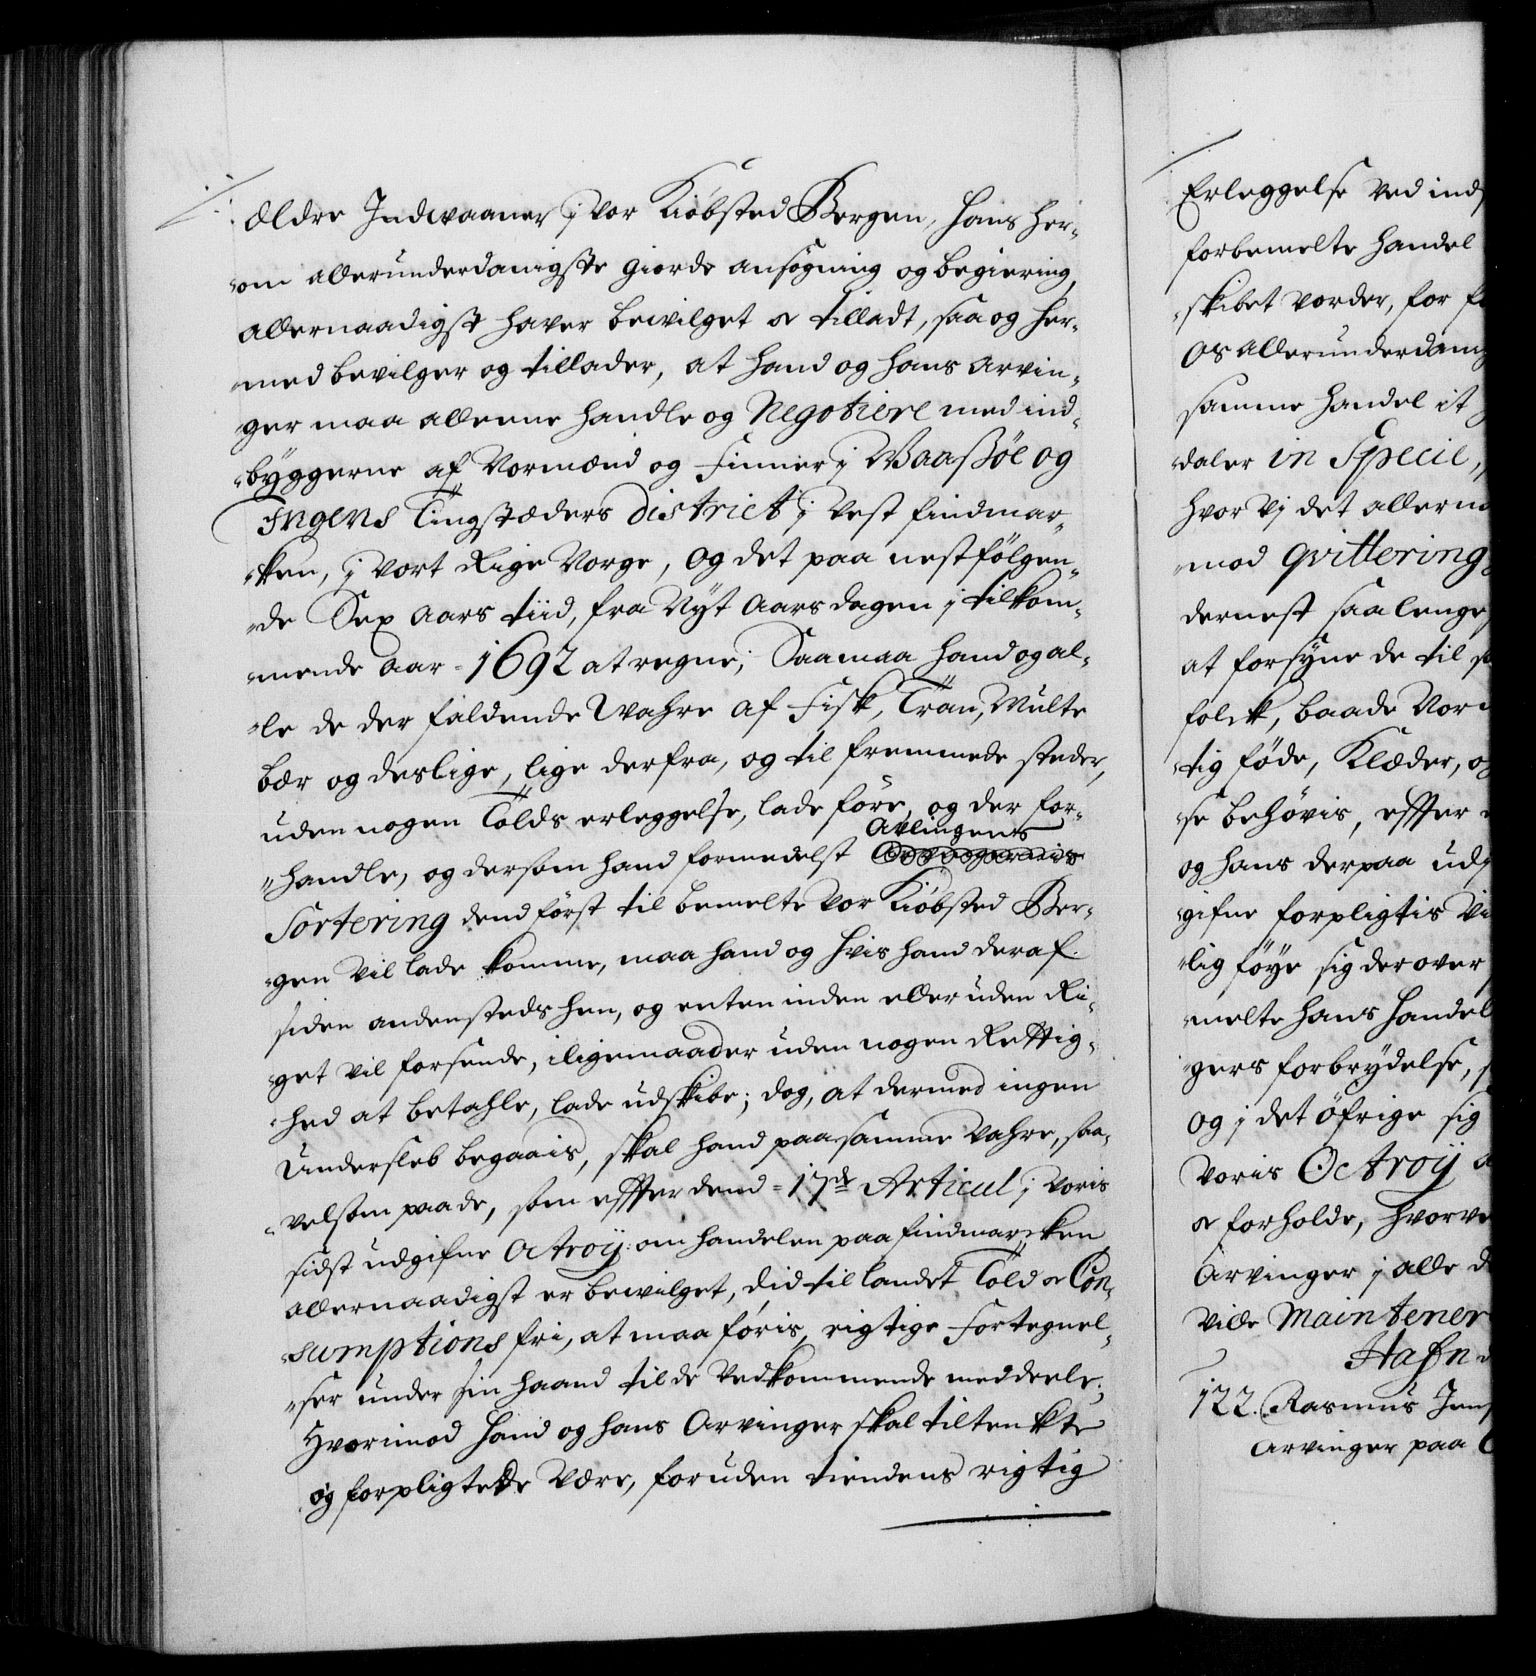 ældre Indwaaner i vor Kiøbsted Bergen, hans her-
om allerunderdanigste giorde ansøgning og begiering,
allernaadigst haver bewilget oc tilladt, saa og her-
med bevilger og tillader, at hand og hans arvin-
ger maa alleene handle og Negotiere med ind-
byggerne af Normænd og Finner i Waasøe og
Ingens Tingstæders District i Vest Findmar-
ken, i vort Rige Norge, og det paa nestfølgen-
de Sex aars tiid, fra Nyt Aars dagen i tilkom-
mende aar 1692 at regne; Saa maa hand og al-
le de der faldende Wahre af Fisk, Tran, Multe
bær og deslige, lige derfra, og til fremmede steder,
uden nogen Tolds erleggelse, lade føre, og der for-
handle, og dersom hand formedelst Avlingens
Sortering dend først til bemelte vor Kiøbsted Ber-
gen vil lade komme, maa hand og hvis hand deraf
siden andensteds hen, og enten inden eller uden Ri-
get vil forsende, iligemaader uden nogen Rettig-
hed at betahle, lade udskibe; dog, at dermed ingen
Undersleb begaais, skal hand paa samme Vahre, saa-
velsom paa de, som effter dend 17de Articul i voris
sidst udgifne Octroij om handelen paa Findmarcken
allernaadigst er bewilget, did til landet Told oc Con-
sumptions fri, at maa føris, rigtige Fortegnel-
ser under sin haand til de Vedkommende meddeele;
Hvorimod hand og hans Arvinger skal tiltenkte
og forpligtede være, foruden tiendens rigtig
Erleggelse ved ind
forbemelte handel
skibet vorder, for
Os allerunderdanig
samme handel it
daler in Specie,
hvor Vi det allern
mod qvittering
dernest saa lenge
at forsyne de til
folck, baade Nor
tig føde, Klæder, og
se behøvis, effter
og hans derpaa ud
gifne forpligtis
lig føye sig derover
melte hans handel
gers forbrydelse,
og i det øfrige sig
voris Octroij
oc forholde, hvorve
Arvinger i alle
ville Maintener
Hafn
122. Rasmus Jens
Arvinger paa